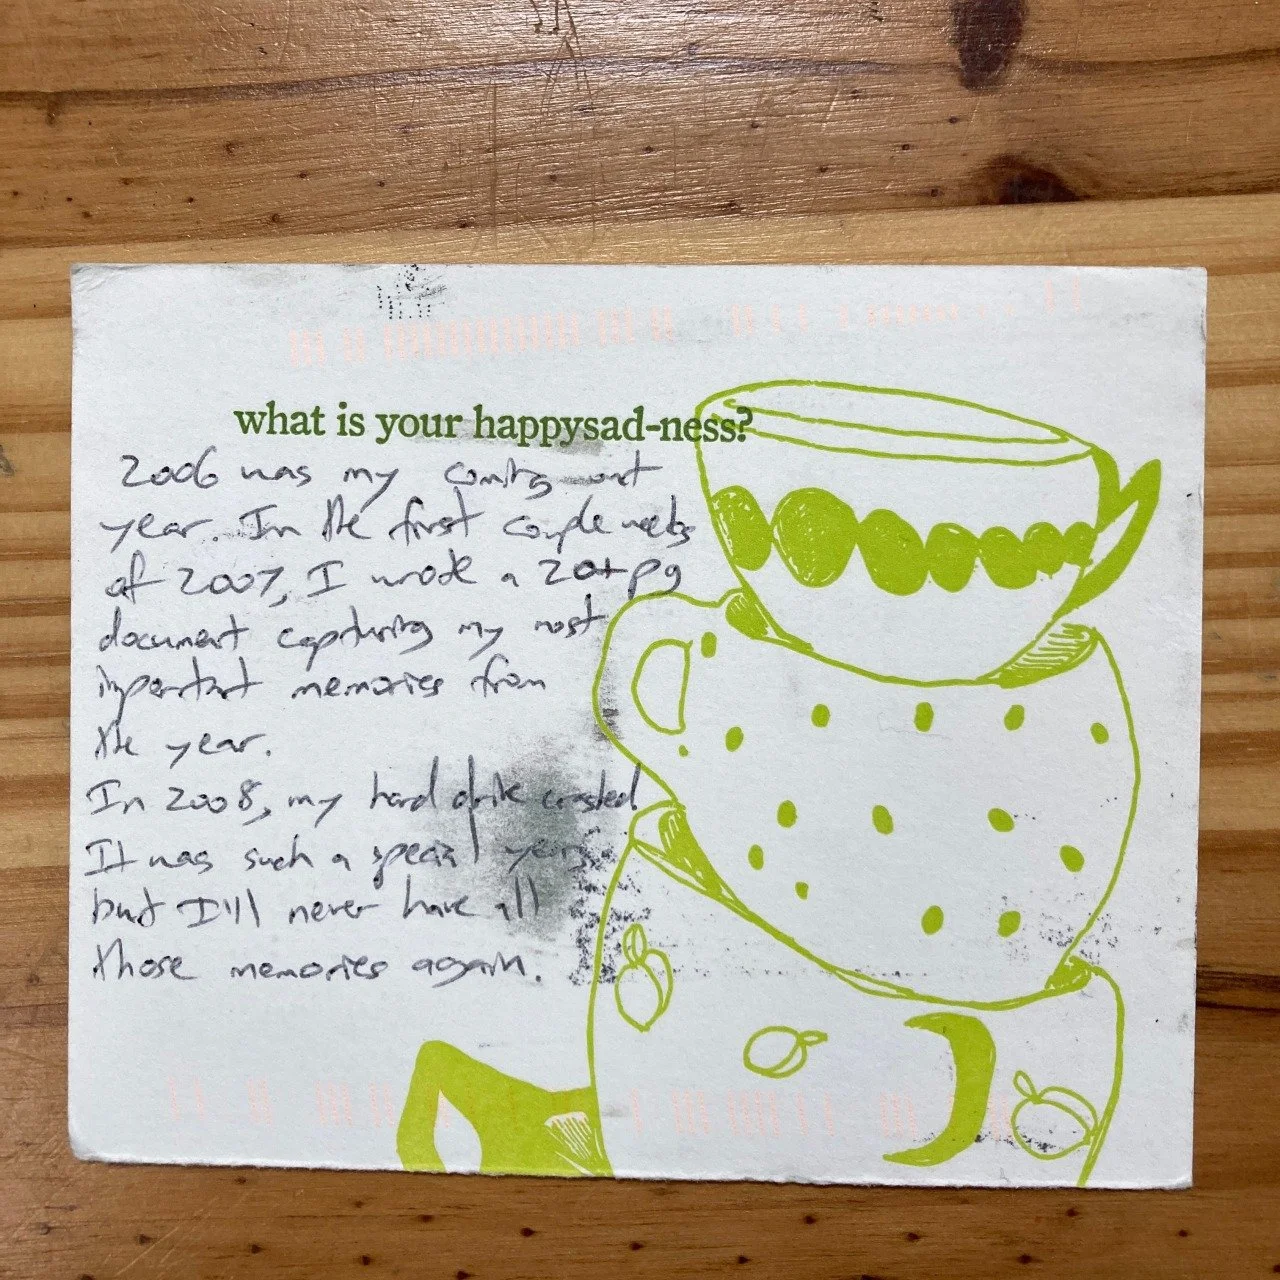 what is your happysad-ness?
2006 was my coming out
year. In the first couple weeks
of 2007, I wrote a 20+ pg
document capturing my most
important memories from
the year.
In 2008, my hard drive crashed
It was such a special year,
but I'll never have all
those memories again.